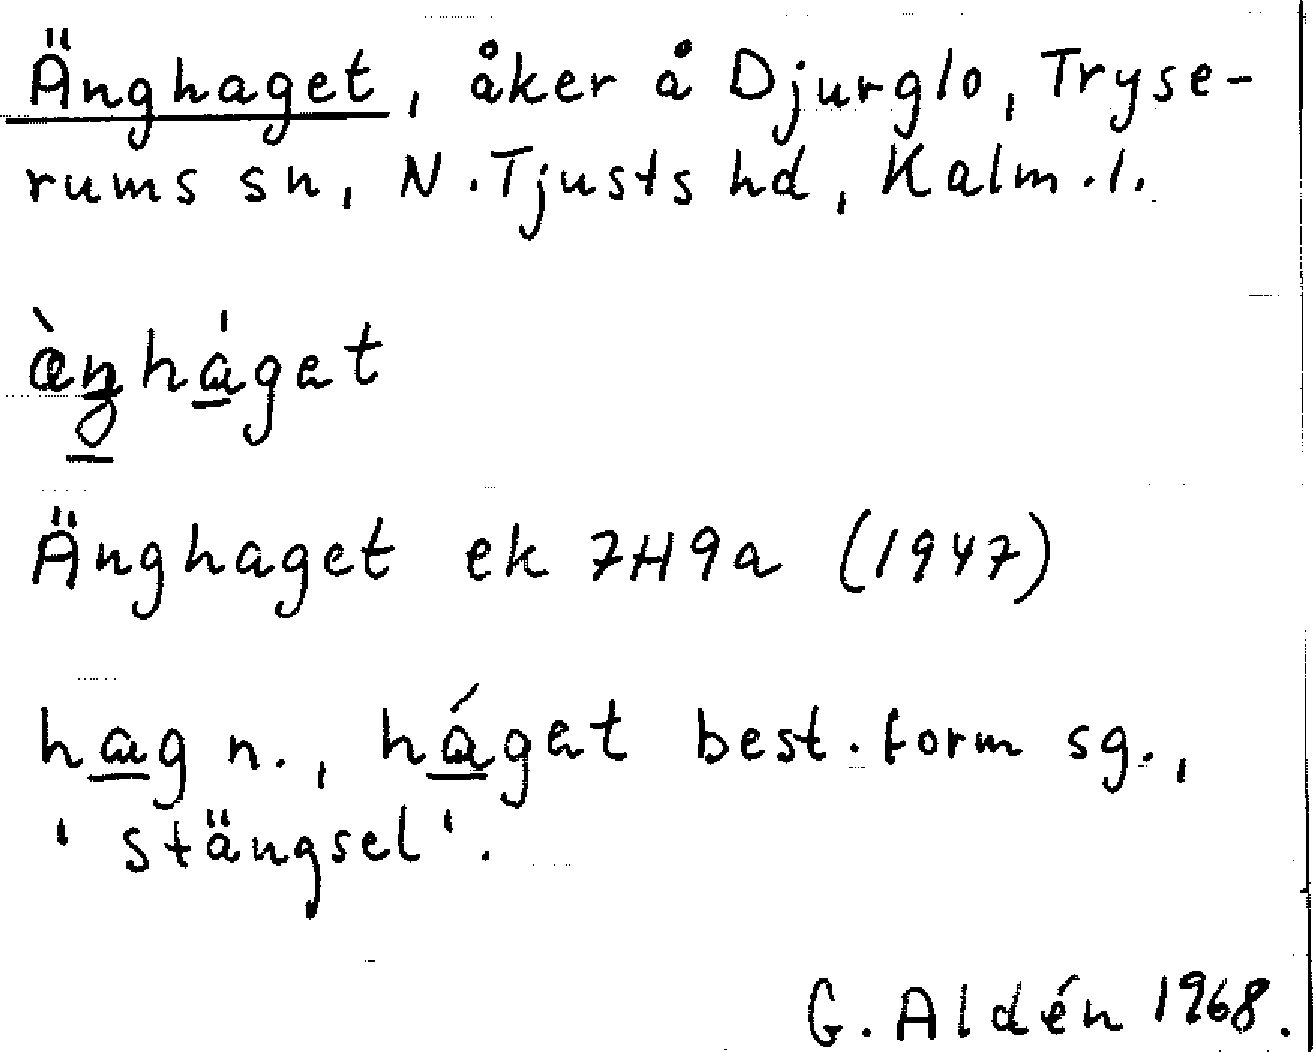 Änghaget, åker å Djurglo, Tryse-
rums sn, N. Tjusts hd, Kalm. l.
æ̀ŋhág̣et
Änghaget ek 7H9a (1947)
hag n., háget best. form sg.,
'stängsel'.
G. Aldén 1968.